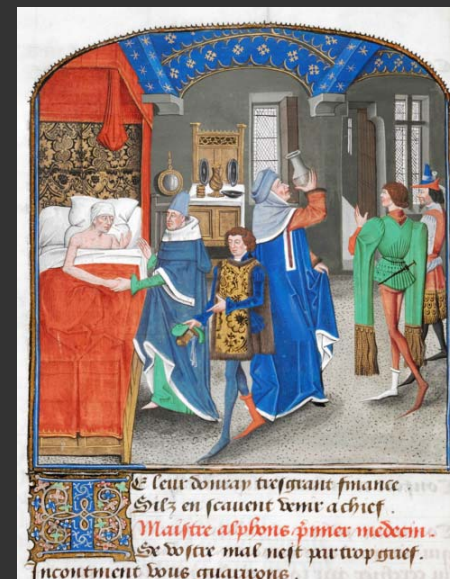 E leur donray tresgrant finance
Silz en scauent venir a chief.
Maistre alphons pmier medecin.
De vostre mal nest par trop grief.
ncontinent vous guarirons.